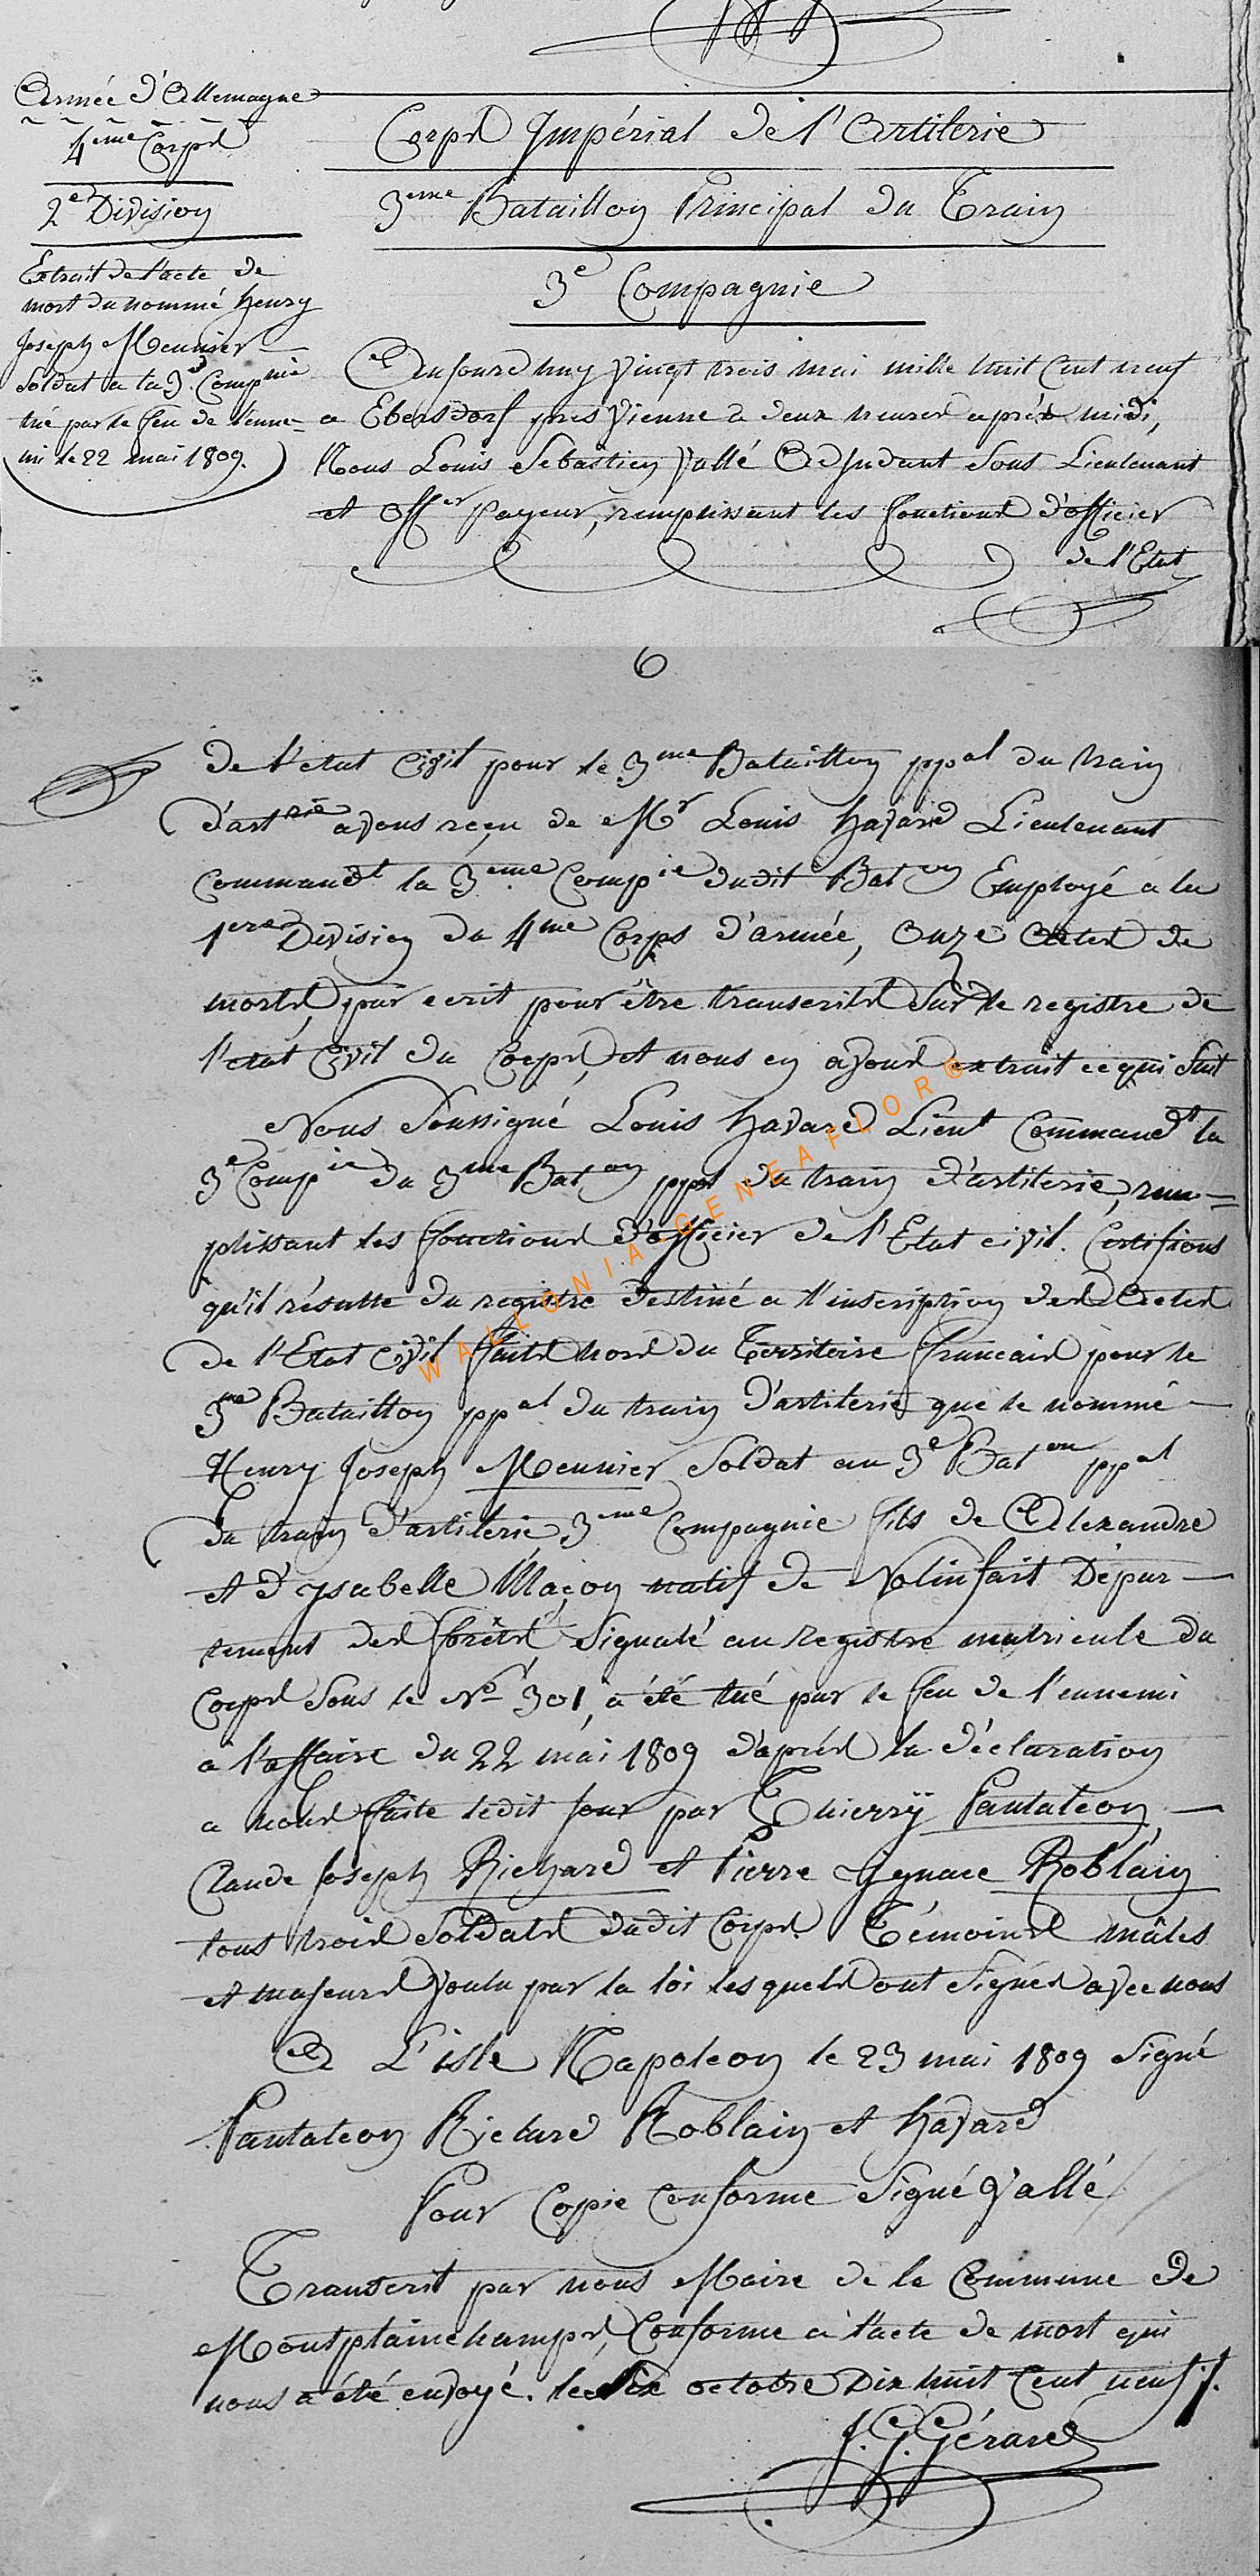 Armée d'Allemagne
4eme Corps
2e Division
Extrait de l'acte de
mort du nommé henry
Joseph Meunier
Soldat a la 3e Compnie
tué par le feu de l'enne-
mi le 22 mai 1809.
Corps Impérial de l'Artilerie
3eme Bataillon Principal du Train
3e Compagnie
Aujourd huy Vingt trois mai mille huit Cent neuf
a Ebersdorf pres Vienne a deux heures après midi,
Nous Louis Sebastien Vallé Adjudant Sous Lieutenant
et Offer payeur, remplissant les fonctions d'officier
de l'Etat
6
de l'etat Civil pour le 3me Bataillon ppal du train
d'artrie avons reçu de Mr Louis havard Lieutenant
commandt la 3eme Compie dudit Baton Employé a la
1ere Division du 4me Corps d'armée, Onze Actes de
morts par ecrit pour être transcrits Sur le registre de
l'etat Civil du Corps, et nous en avons extrait ce qui Suit
Nous Soussigné Louis havard Lieut Commandt la
3e Compie du 3me Baton ppal du train d'artilerie, rem=
plissant les fonctions d'officier de l'Etat civil. Certifions
qu'il résulte du registre destiné a l'inscription des Actes
de l'Etat Civil faits hors du Territoire francais pour le
3me Bataillon ppal du train d'artilerie que le nommé
Henry Joseph Meunier Soldat au 3e Baton ppal
du train d'artilerie 3eme Compagnie fils de Alexandre
et d'ysabelle Maçon natif de Nolinfait Dépar-
tement des forêts Signalé au registre matricule du
Corps Sous le No 301, a été tué par le feu de l'ennemi
a l'affaire du 22 mai 1809 d'après la déclaration
a nous faite ledit jour par Thierrÿ Pantaleon,
Claude Joseph Richard et Pierre Ignace Roblain
tous trois Soldats dudit Corps. Témoins mâles
et majeurs voulu par la loi lesquels ont Signés avec nous
A L'isle Napoleon le 23 mai 1809 Signé
Pantaleon Richard Roblain et havard
Pour Copie Conforme Signé Vallé
Transcrit par nous Maire de la Commune de
Montplainchamps, Conforme a l'acte de mort qui
nous a été envoyé. le Six octobre Dix huit Cent neuf.
J. G. Gérard
WALLONIA GENEAFLOR®